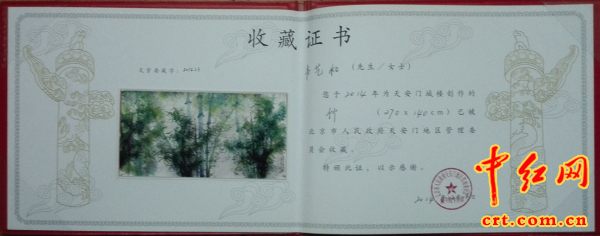 收藏证书
天管委藏字：
（先生／女士）
您于2014年为天安门城楼创作的
竹 （270×140cm）已被
北京市人民政府天安门地区管理委
员会收藏。
特颁此证，以示感谢。
2014
中红网
crt.com.cn